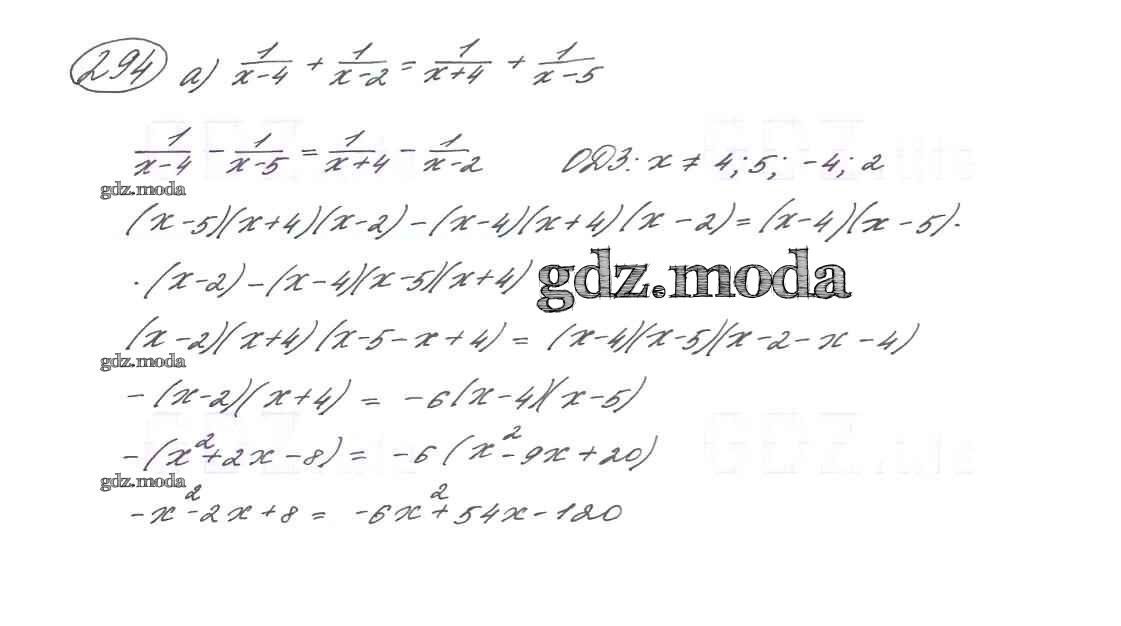 294 а) 1/(x-4) + 1/(x-2) = 1/(x+4) + 1/(x-5)
1/(x-4) - 1/(x-5) = 1/(x+4) - 1/(x-2) ОДЗ: x ≠ 4; 5; -4; 2
gdz.moda
(x-5)(x+4)(x-2) - (x-4)(x+4)(x-2) = (x-4)(x-5)·
·(x-2) - (x-4)(x-5)(x+4)
gdz.moda
(x-2)(x+4)(x-5-x+4) = (x-4)(x-5)(x-2-x-4)
gdz.moda
-(x-2)(x+4) = -6(x-4)(x-5)
-(x²+2x-8) = -6(x²-9x+20)
gdz.moda
-x²-2x+8 = -6x²+54x-120